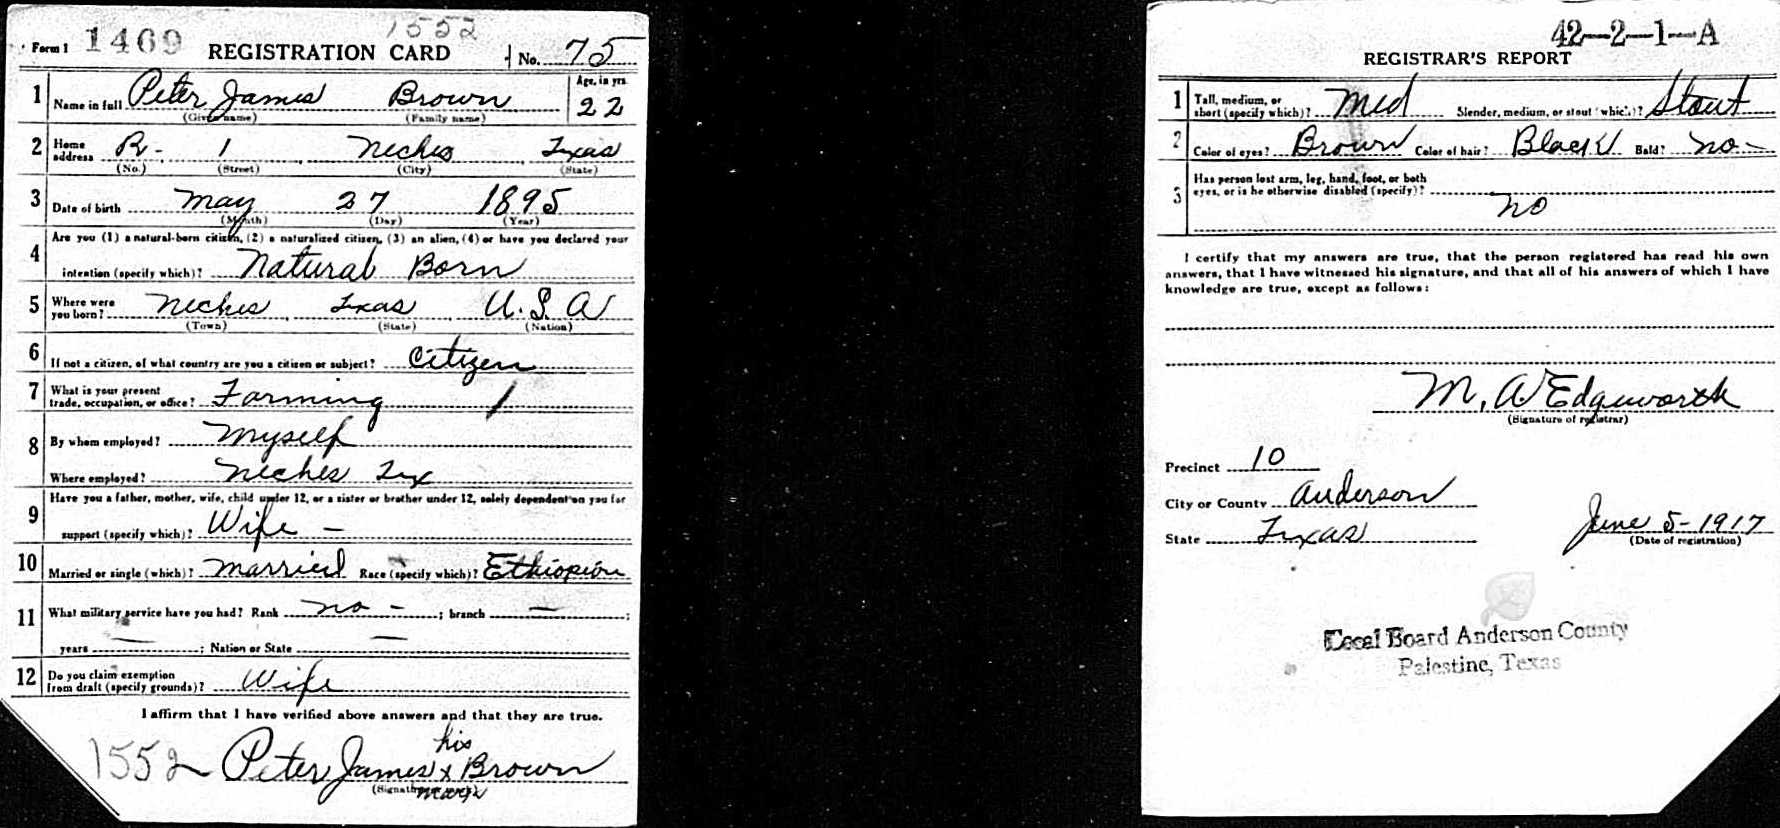 1552
Form 1 1469 REGISTRATION CARD No. 75
1 Name in full Peter James Brown Age, in yrs. 22
(Given name) (Family name)
2 Home address R- 1 Neches Texas
(No.) (Street) (City) (State)
3 Date of birth May 27 1895
(Month) (Day) (Year)
4 Are you (1) a natural-born citizen, (2) a naturalized citizen, (3) an alien, (4) or have you declared your
intention (specify which)? Natural Born
5 Where were you born? Neches Texas U.S.A
(Town) (State) (Nation)
6 If not a citizen, of what country are you a citizen or subject? Citizen
7 What is your present
trade, occupation, or office? Farming /
8 By whom employed? Myself
Where employed? Neches Tex
9 Have you a father, mother, wife, child under 12, or a sister or brother under 12, solely dependent on you for
support (specify which)? Wife -
10 Married or single (which)? Married Race (specify which)? Ethiopian
11 What military service have you had? Rank no - ; branch — ;
years — ; Nation or State —
12 Do you claim exemption
from draft (specify grounds)? Wife
I affirm that I have verified above answers and that they are true.
his
1552 Peter James x Brown
mark
42-2-1-A
REGISTRAR'S REPORT
1 Tall, medium, or
short (specify which)? Med Slender, medium, or stout (which)? Stout
2 Color of eyes? Brown Color of hair? Black Bald? no -
3 Has person lost arm, leg, hand, foot, or both
eyes, or is he otherwise disabled (specify)?
no
I certify that my answers are true, that the person registered has read his own
answers, that I have witnessed his signature, and that all of his answers of which I have
knowledge are true, except as follows:
M. A Edgeworth
(Signature of registrar)
Precinct 10
City or County Anderson
State Texas June 5-1917
(Date of registration)
Local Board Anderson County
Palestine, Texas